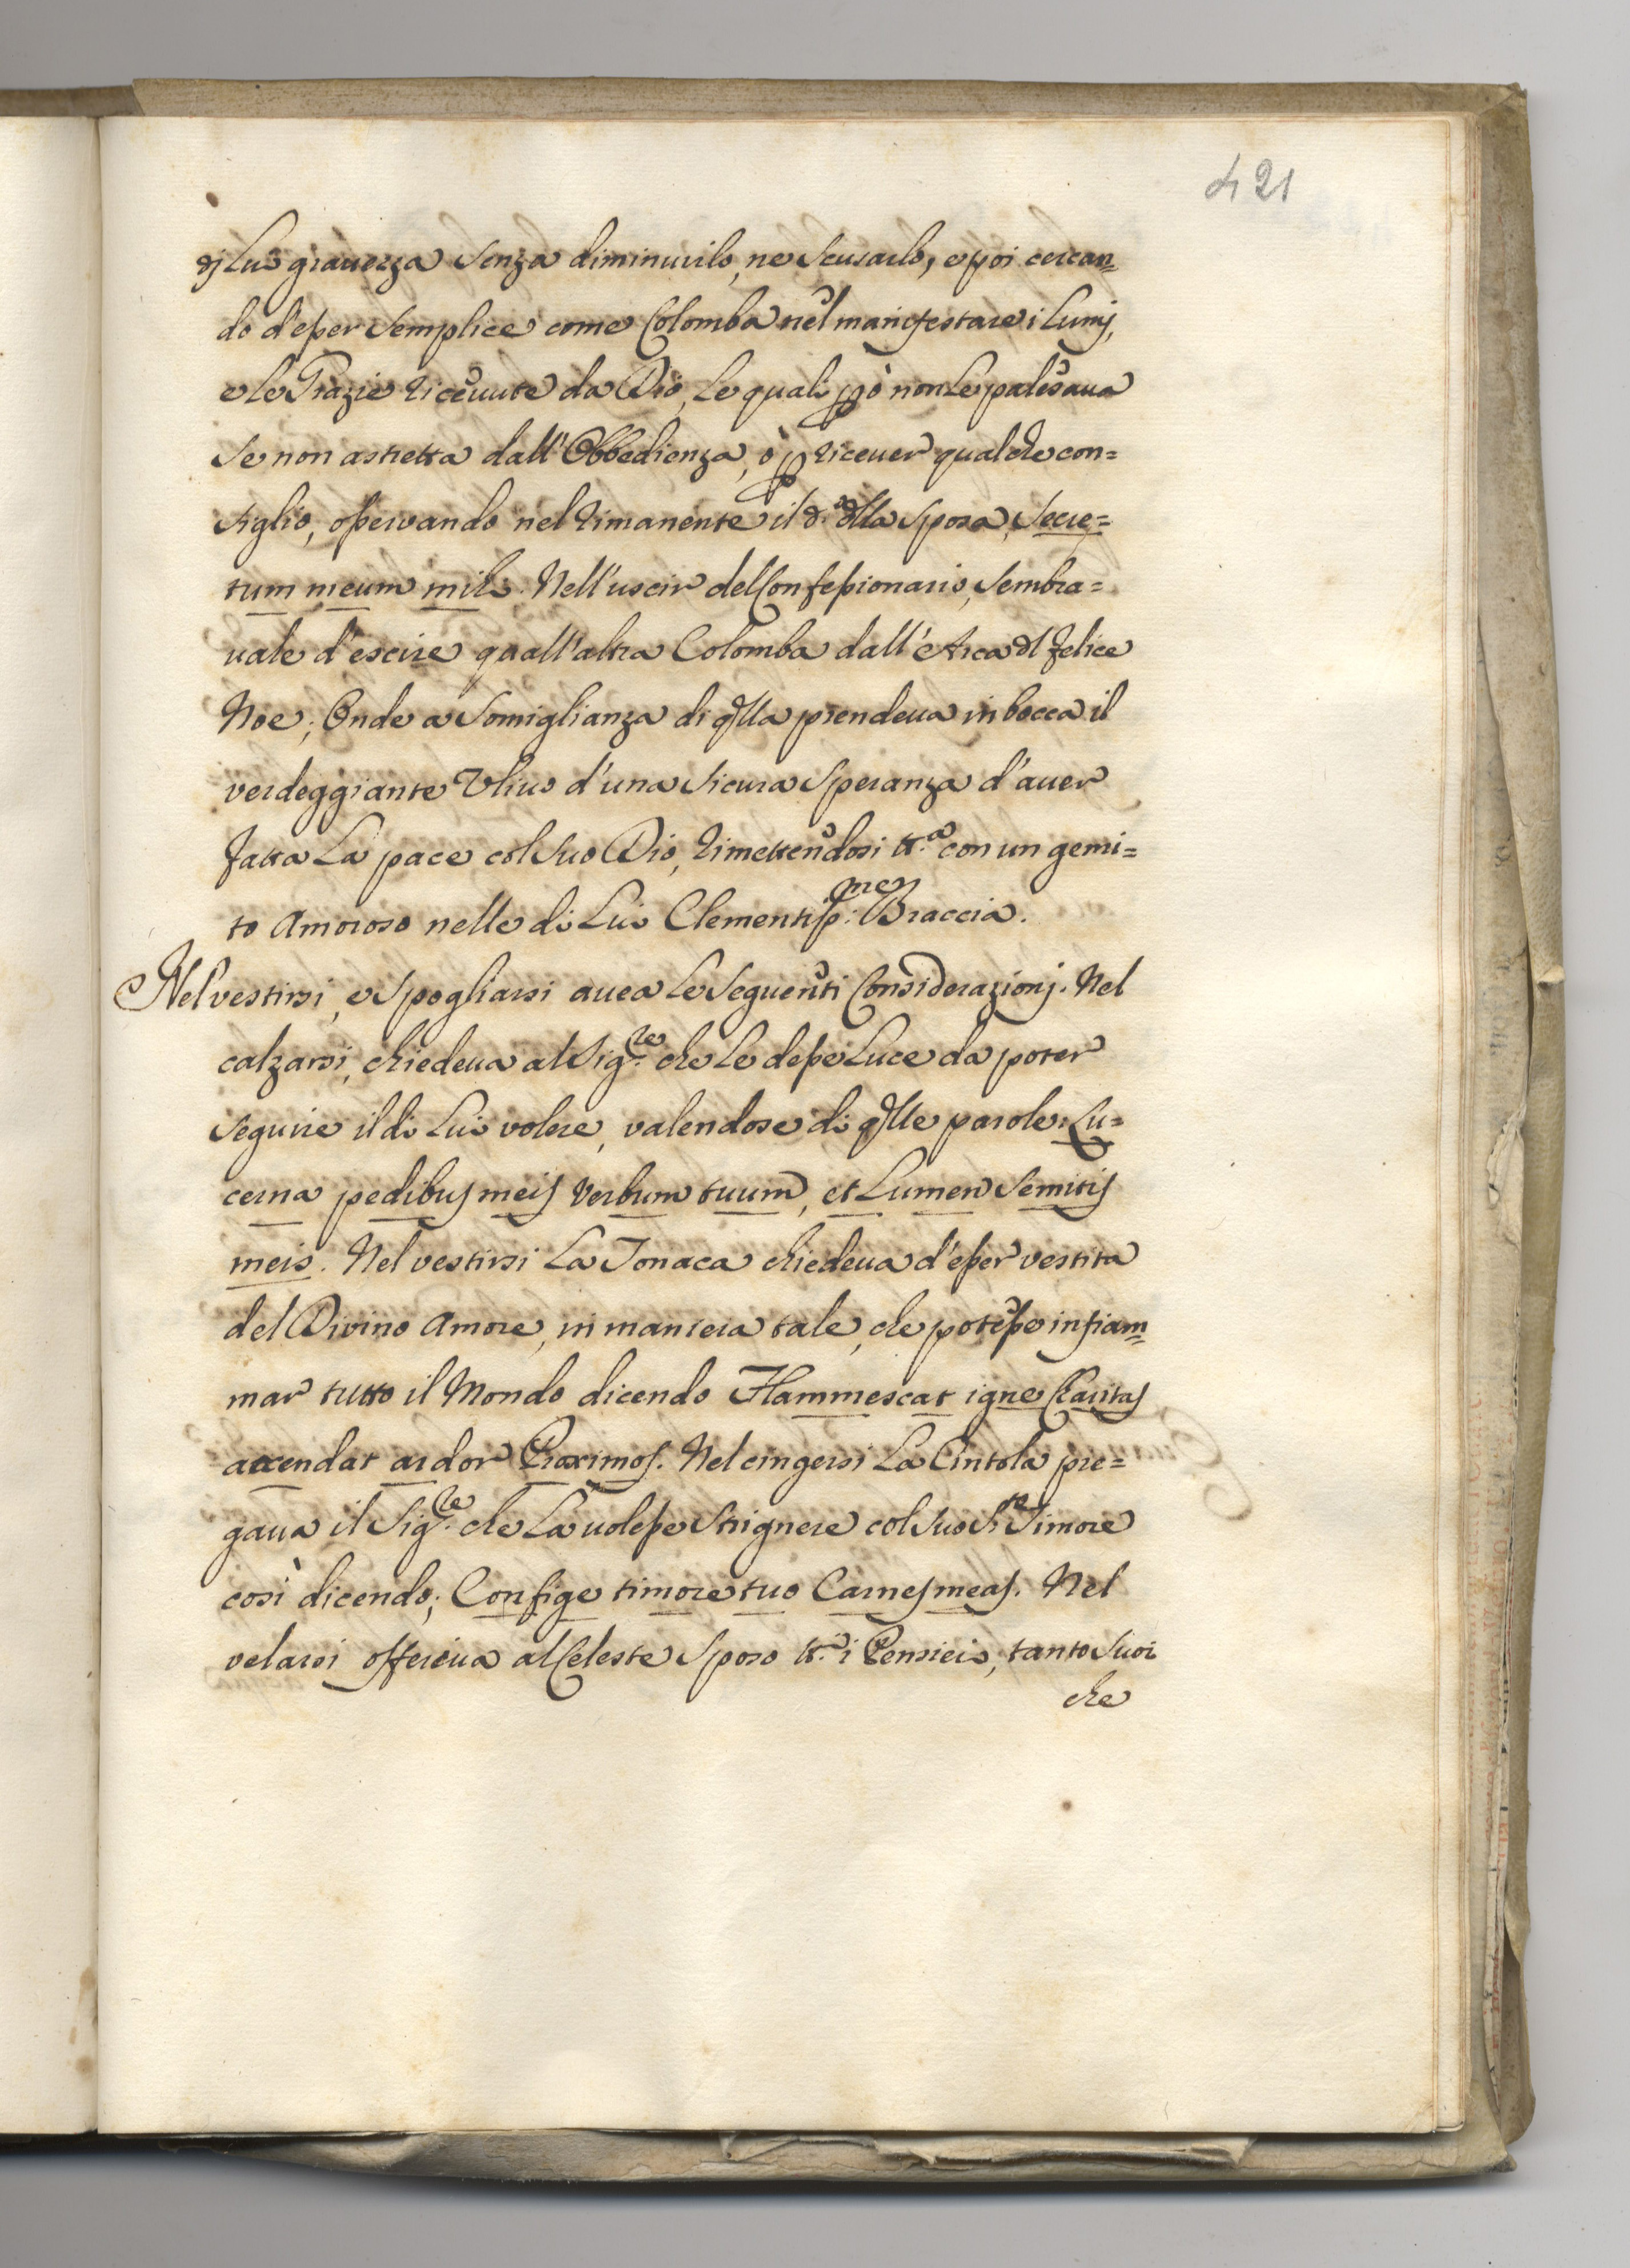 421
di Lui grauezza senza diminuirlo, ne scusarlo, e poi cercan=
do d'esser semplice come Colomba nel manifestare i Lumj,
e le Grazie riceuute da Dio, Le quali però non Le palesaua
se non astretta dall'Obbedienza, ò p riceuer qualche con=
siglio, osseruando nel rimanente il d.º dlla Sposa, Secre=
tum meum mihi. Nell'uscir del Confessionario, sembra=
uale d'escire quall'altra Colomba dall'Arca dl felice
Noe; Onde a somiglianza di qlla prendeua in bocca il
verdeggiante Vliuo d'una sicura speranza d'auer
fatta La pace col suo Dio, rimettendosi tt.ª con un gemi=
to Amoroso nelle di Lui Clementiss.me Braccia.
Nel vestirsi, e spogliarsi auea Le seguenti Considerazionj. Nel
calzarsi, chiedeua al Sig.re che Le desse Luce da poter
seguire il di Lui volere, valendose di qlle parole: Lu=
cerna pedibus meis verbum tuum, et Lumen semitis
meis. Nel vestirsi La Tonaca chiedeua d'esser vestita
del Divino Amore, in maniera tale, che potesse infiam=
mar tutto il Mondo dicendo Flammescat igne Charitas
accendat ardor Proximos. Nel cingersi La Cintola pre=
gaua il Sig.re che La uolesse strignere col suo S.to Timore
così dicendo; Confige timore tuo Carnes meas. Nel
velarsi offeriua al Celeste Sposo tt.i i Pensieri, tanto suoi
che